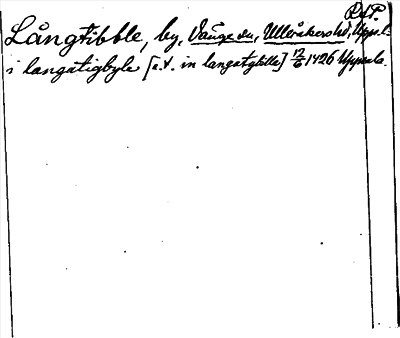 RAP.
Långtibble, by, Vänge sn, Ulleråkers hd, Uppl.
i langatigbyle [a.t. in langatybille] 12/6 1426 Uppsala.